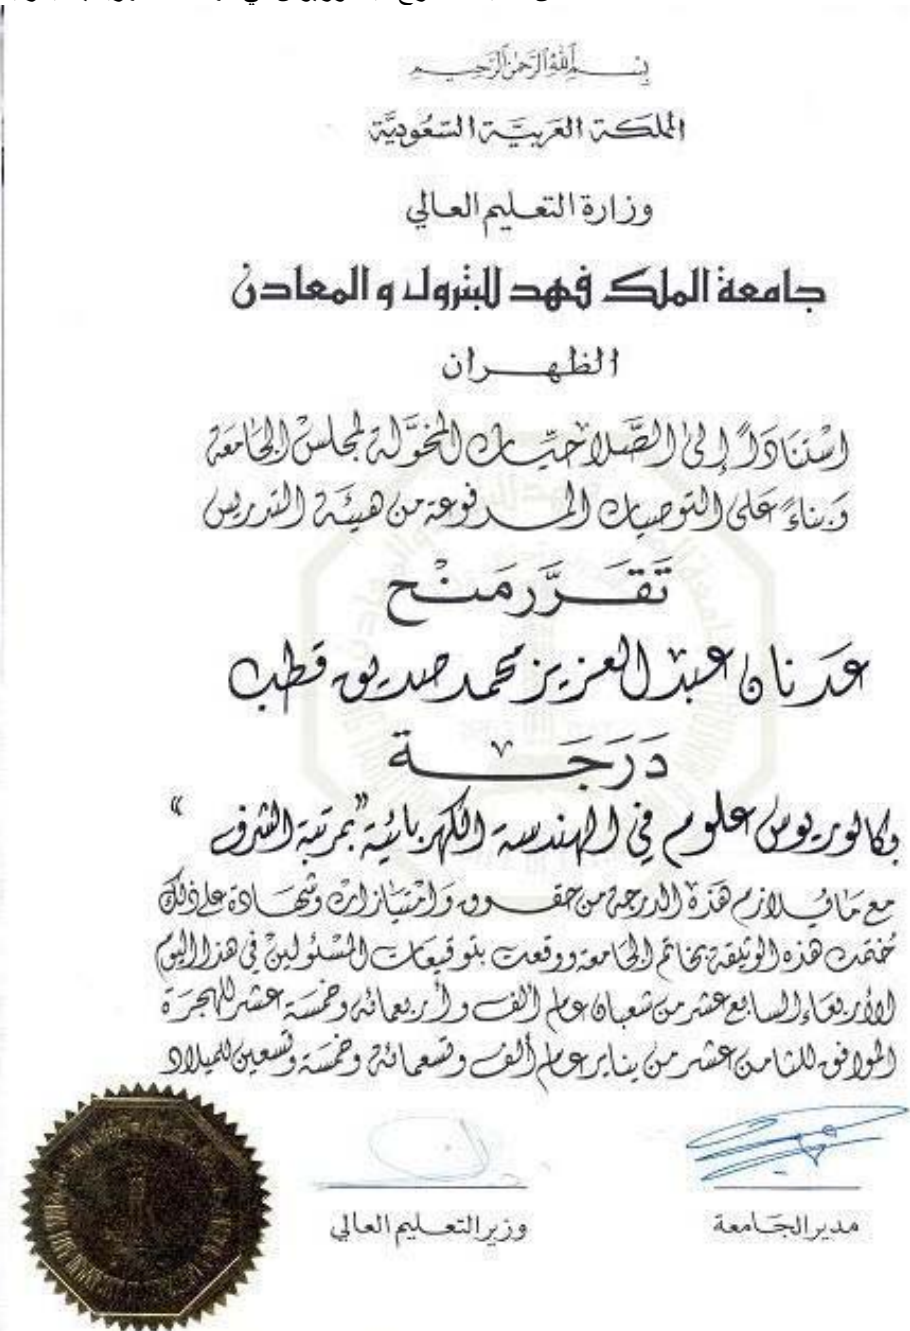 بسم الله الرحمن الرحيم
المملكة العربية السعودية
وزارة التعليم العالي
جامعة الملك فهد للبترول و المعادن
الظهران
اسْتنَاداً إلى الصَّلاحيَّات المخوَّلة لمجلس الجَامعَة
وَبناءً عَلى التوصيات المرفوعة من هيئَة التدريس
تَقَرَّر مَنْح
عَدنان عبد العزيز محمد صديق قطب
دَرَجَة
بكالوريوس علوم في الهندسة الكهربائية "بمرتبة الشرف"
مع مَا يلازم هَذه الدرجة من حقوق وَامْتيَازات وشهَادة على ذلك
خُتمت هذه الوثيقة بخاتم الجامعة ووقعت بتوقيعَات المسْئولين في هذا اليوم
الأربعَاء السابع عشر من شعبان عام ألف وأربعمائة وخمسَة عشر للهجرَة
الموافق للثامن عشر من يناير عام ألف وتسعمائة وخمسَة وتسعين للميلاد
مدير الجَامعة
وزير التعليم العالي